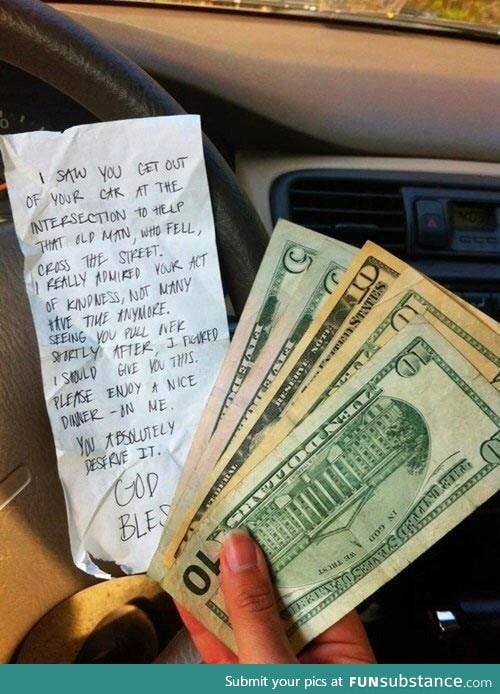 I SAW YOU GET OUT
OF YOUR CAR AT THE
INTERSECTION TO HELP
THAT OLD MAN, WHO FELL,
CROSS THE STREET.
I REALLY ADMIRED YOUR ACT
OF KINDNESS, NOT MANY
HAVE TIME ANYMORE.
SEEING YOU PULL OVER
SHORTLY AFTER, I FIGURED
I SHOULD GIVE YOU THIS.
PLEASE ENJOY A NICE
DINNER - ON ME.
YOU ABSOLUTELY
DESERVE IT.
GOD
BLES
5
5
10
RESERVE NOTE
UNITED STATES
10
TEN DOLLARS
IN GOD
WE TRUST
THE UNITED STATES OF AMERICA
10
Submit your pics at FUNsubstance.com